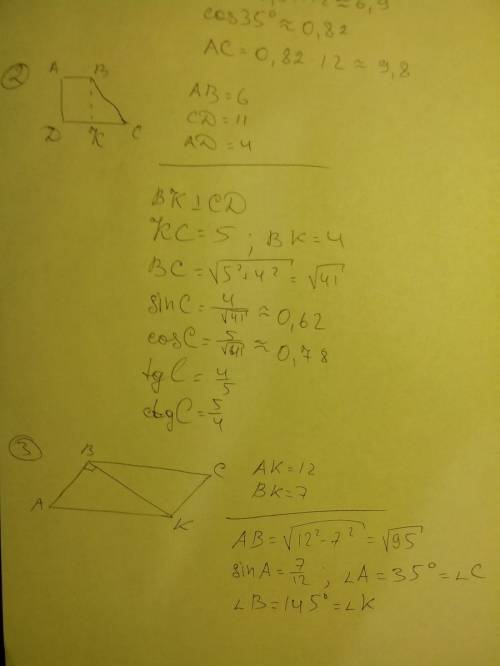 cos35° ≈ 0,82
AC = 0,82 · 12 ≈ 9,8
2
A B
D K C
AB = 6
CD = 11
AD = 4
BK ⊥ CD
KC = 5 ; BK = 4
BC = √5²+4² = √41
sinC = 4/√41 ≈ 0,62
cosC = 5/√41 ≈ 0,78
tgC = 4/5
ctgC = 5/4
3
B
C
A
K
AK = 12
BK = 7
AB = √12²-7² = √95
sinA = 7/12 ; ∠A = 35° = ∠C
∠B = 145° = ∠K